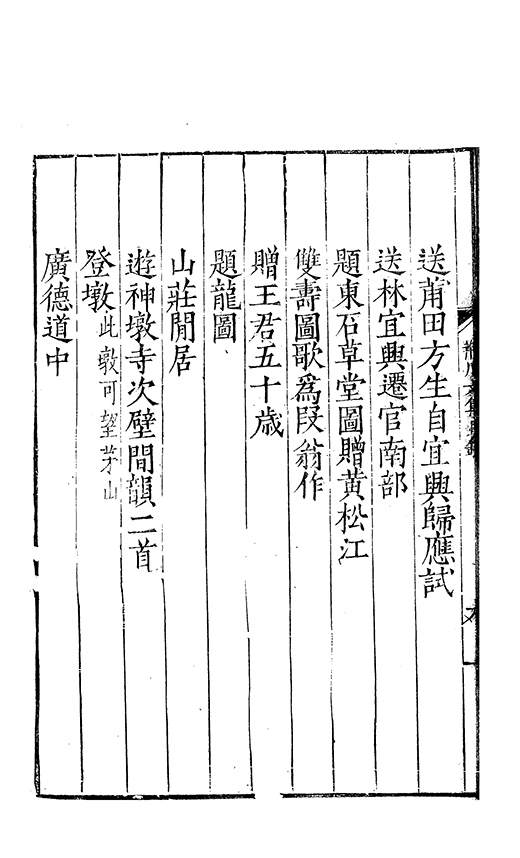 送莆田方生自宜興歸應試
送林宜興遷官南部
題東石草堂圖贈黃松江
雙壽圖歌為段翁作
贈王君五十歲
題龍圖
山莊閒居
遊神墩寺次壁間韻二首
登墩此墩可望茅山
廣德道中